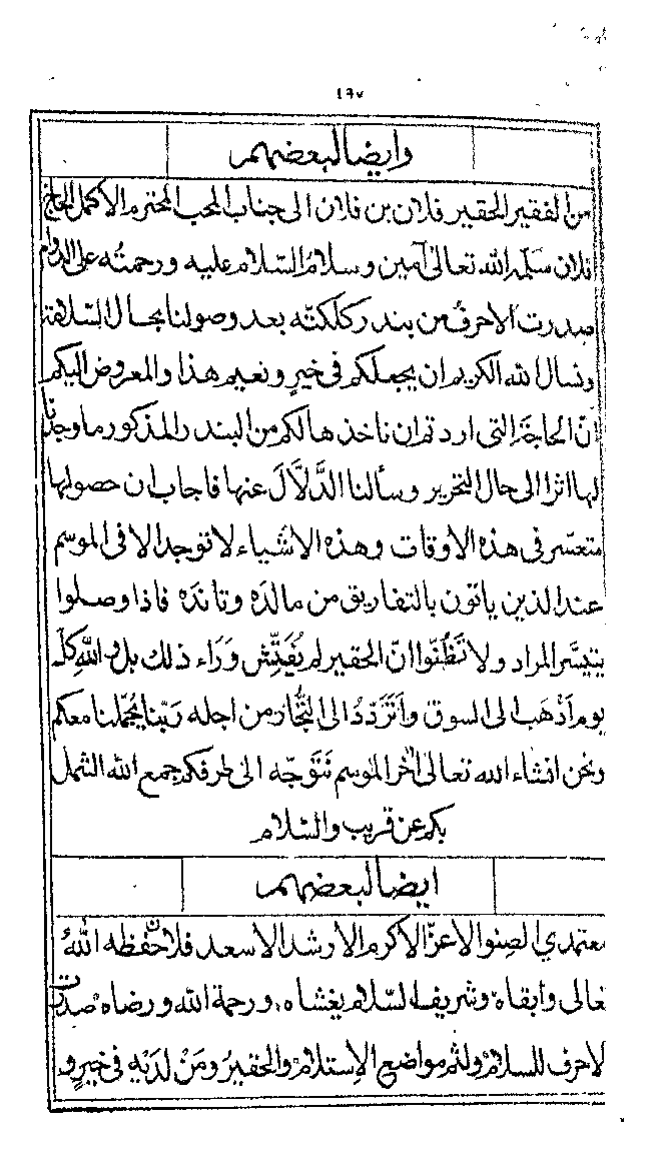 ١٦٧
وايضا لبعضهم
من الفقير الحقير فلان بن فلان الى جناب المحب المحترم الاكمل الحاج
فلان سلمه الله تعالى آمين وسلام السّلام عليه ورحمتُه على الدوام
صدرت الاحرفُ من بندر كلكتّه بعد وصولنا بحال السّلامة
ونسال الله الكريم ان يجعلكم فى خيرٍ ونعيم هذا والمعروض اليكم
انّ الحاجةَ التى اردتم ان ناخذها لكم من البندر المذكور ما وجدنا
لها اثرا الى حال التحرير وسألنا الدَّلَّالَ عنها فاجاب ان حصولها
متعسّر فى هذه الاوقات وهذه الاشياء لا توجد الا فى الموسم
عند الذين ياتون بالتفاريق من مالدَه وتاندَه فاذا وصلوا
يتيسَّر المراد ولا تَظُنّوا انّ الحقير لم يُفَتِّش وَرَاء ذلك بل واللهِ كلّ
يوم اَذْهَب الى السوق واَتَرَدّدُ الى التُّجّار من اجله رَبّنا يُجمّلنا معكم
ونحن انشاء الله تعالى آخر الموسم نَتَوَجّه الى طرفكم جمع الله الشمل
بكم عن قريب والسّلام
ايضا لبعضهم
معتمدي الصِنو الاعزّ الاكرم الارشد الاسعد فلان حفظه اللهُ
تعالى وابقاه وشريف السّلام يغشاه ورحمة الله ورضاه صدرت
الاحرف للسلام ولثم مواضع الاِستلام والحقيرُ ومَنْ لدَيْهِ فى خيرٍ و